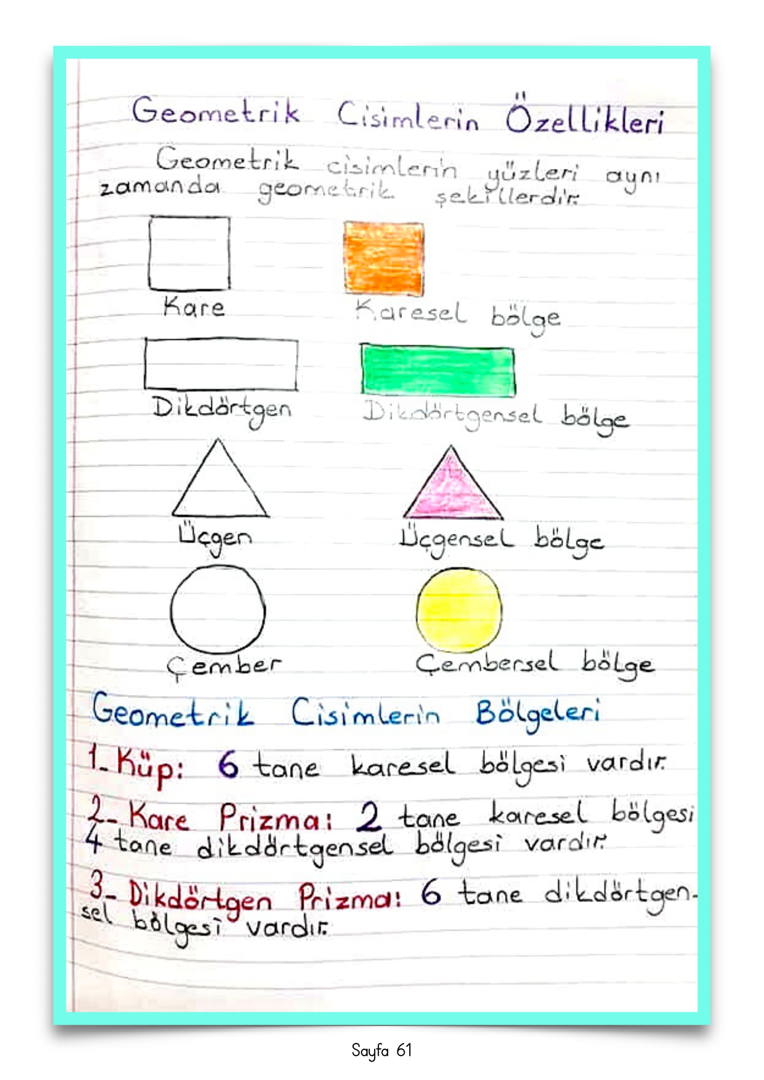 Geometrik Cisimlerin Özellikleri
Geometrik cisimlerin yüzleri aynı
zamanda geometrik şekillerdir.
Kare Karesel bölge
Dikdörtgen Dikdörtgensel bölge
Üçgen Üçgensel bölge
Çember Çembersel bölge
Geometrik Cisimlerin Bölgeleri
1- Küp: 6 tane karesel bölgesi vardır.
2- Kare Prizma: 2 tane karesel bölgesi
4 tane dikdörtgensel bölgesi vardır.
3- Dikdörtgen Prizma: 6 tane dikdörtgen-
sel bölgesi vardır.
Sayfa 61